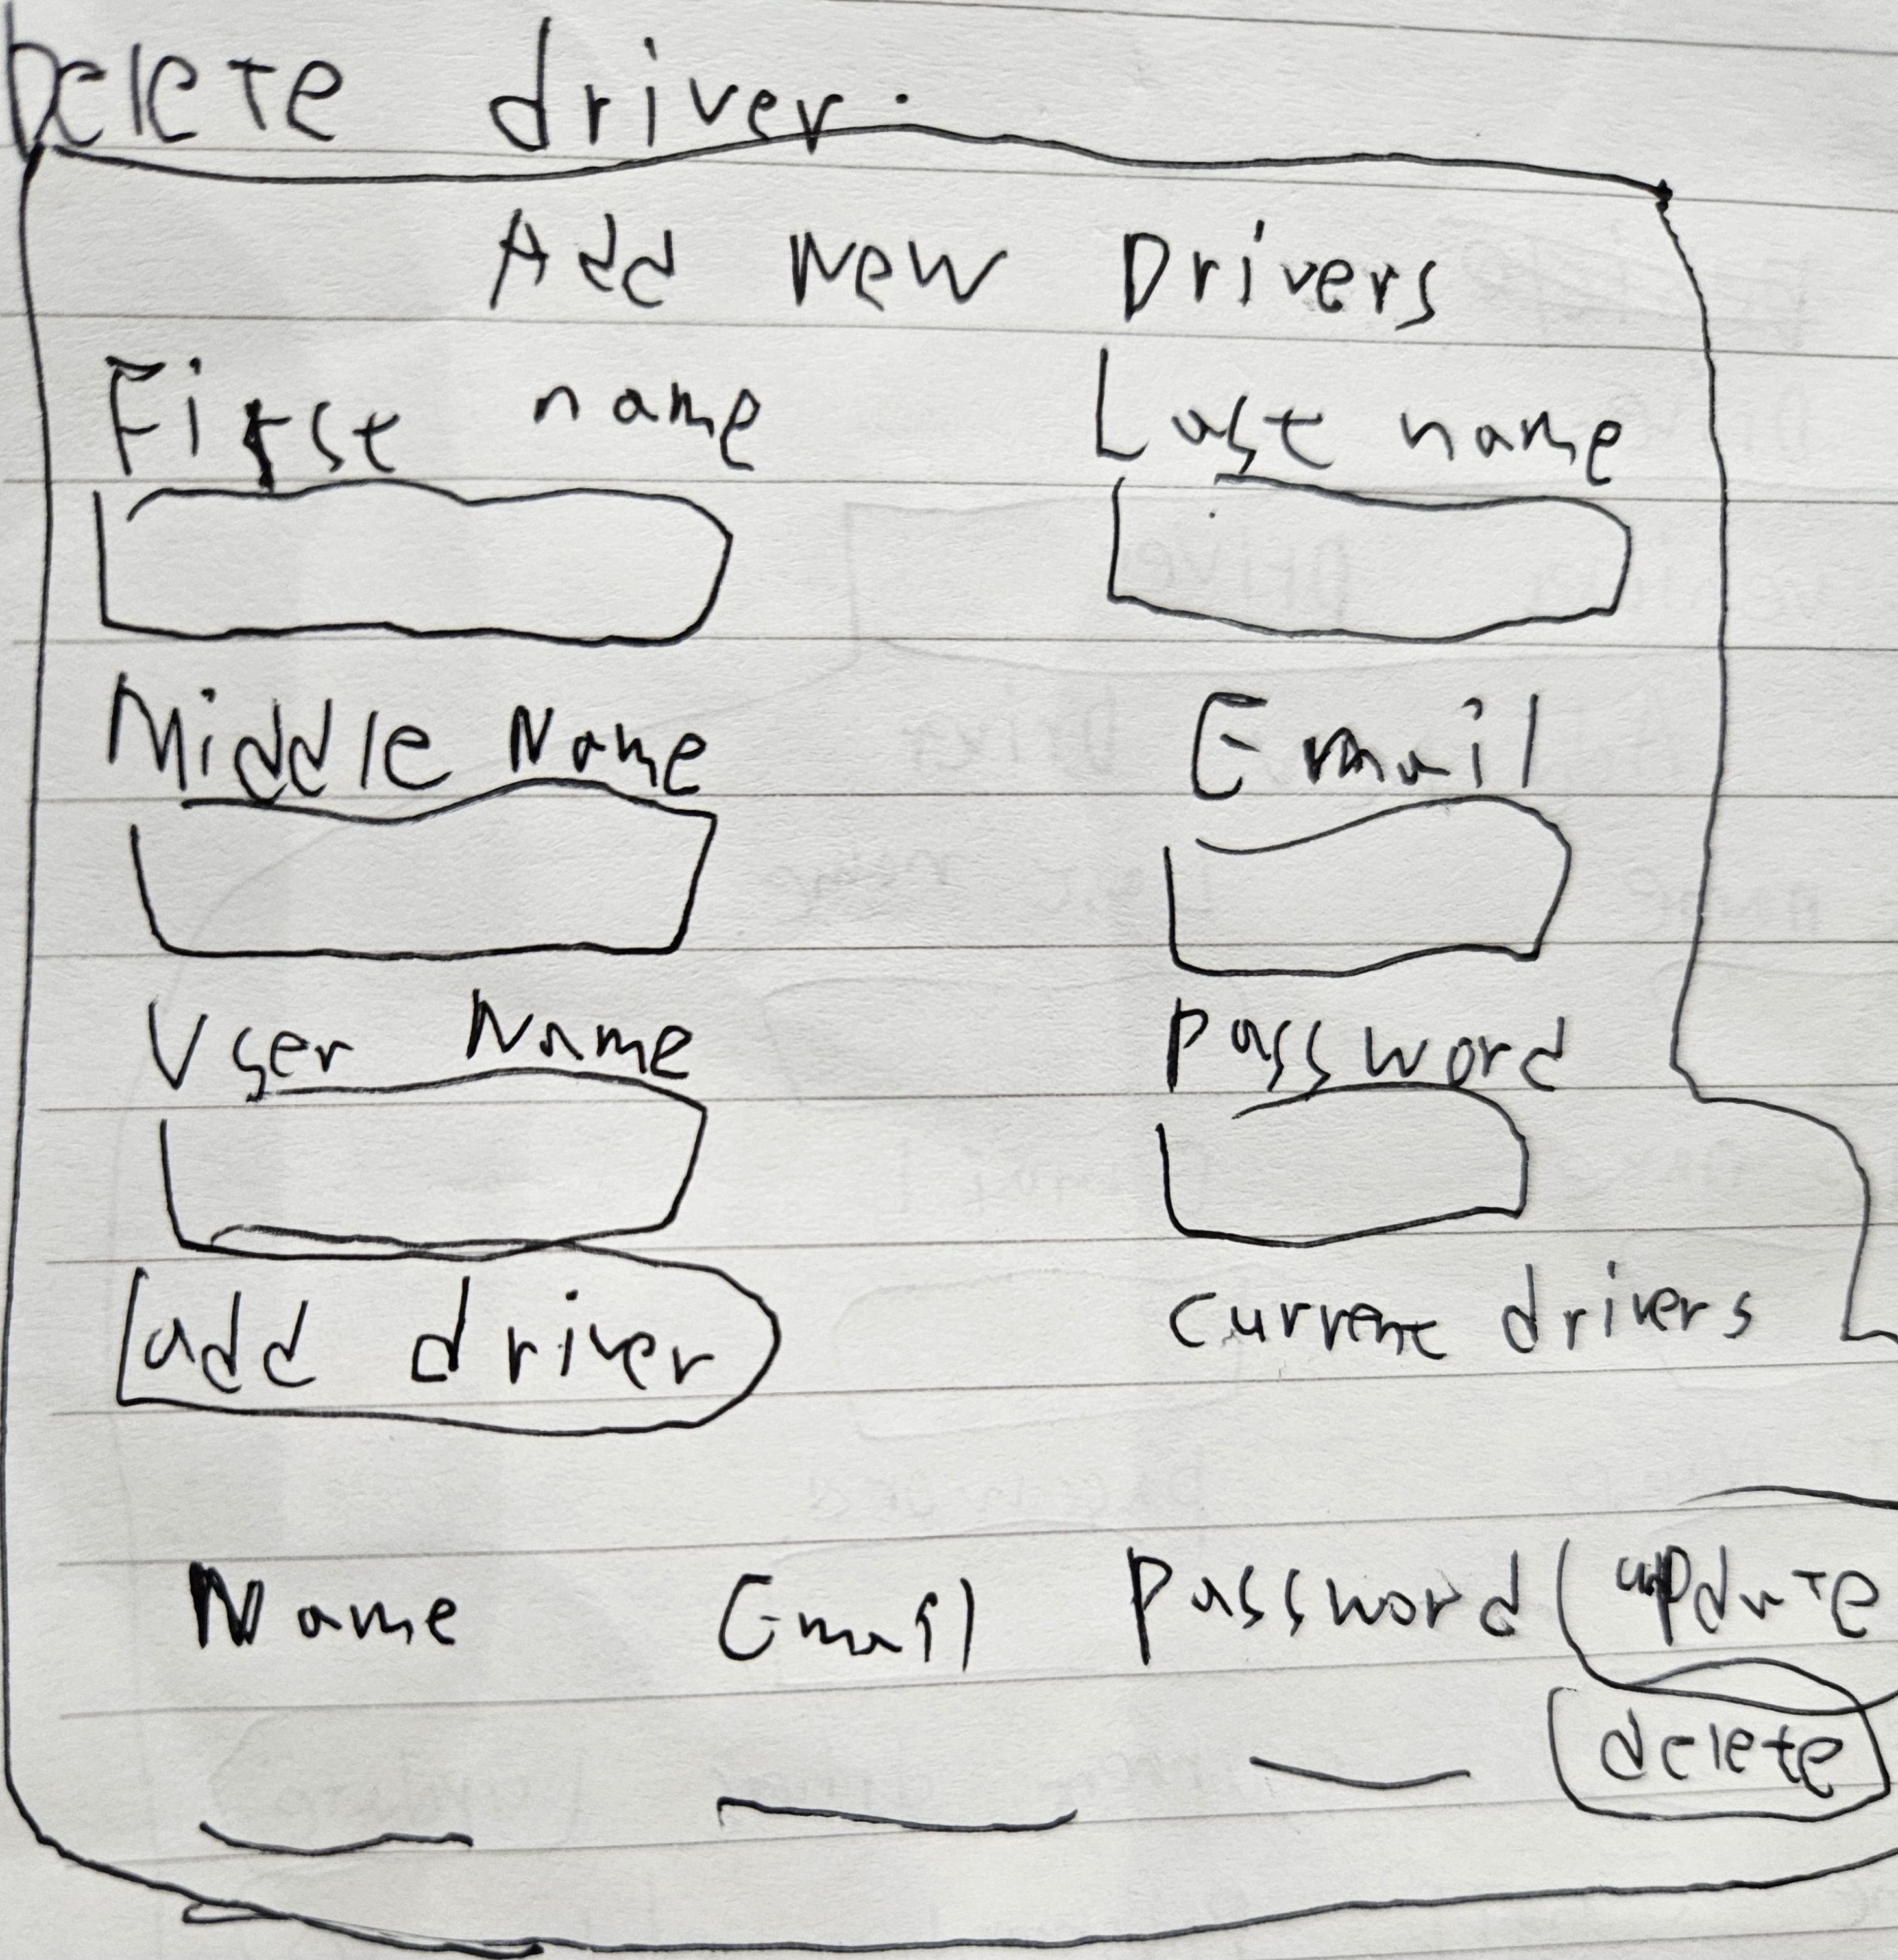 Delete driver.
Add New Drivers
First name Last name
Middle Name Email
User Name Password
add driver current drivers
Name Email Password update
delete